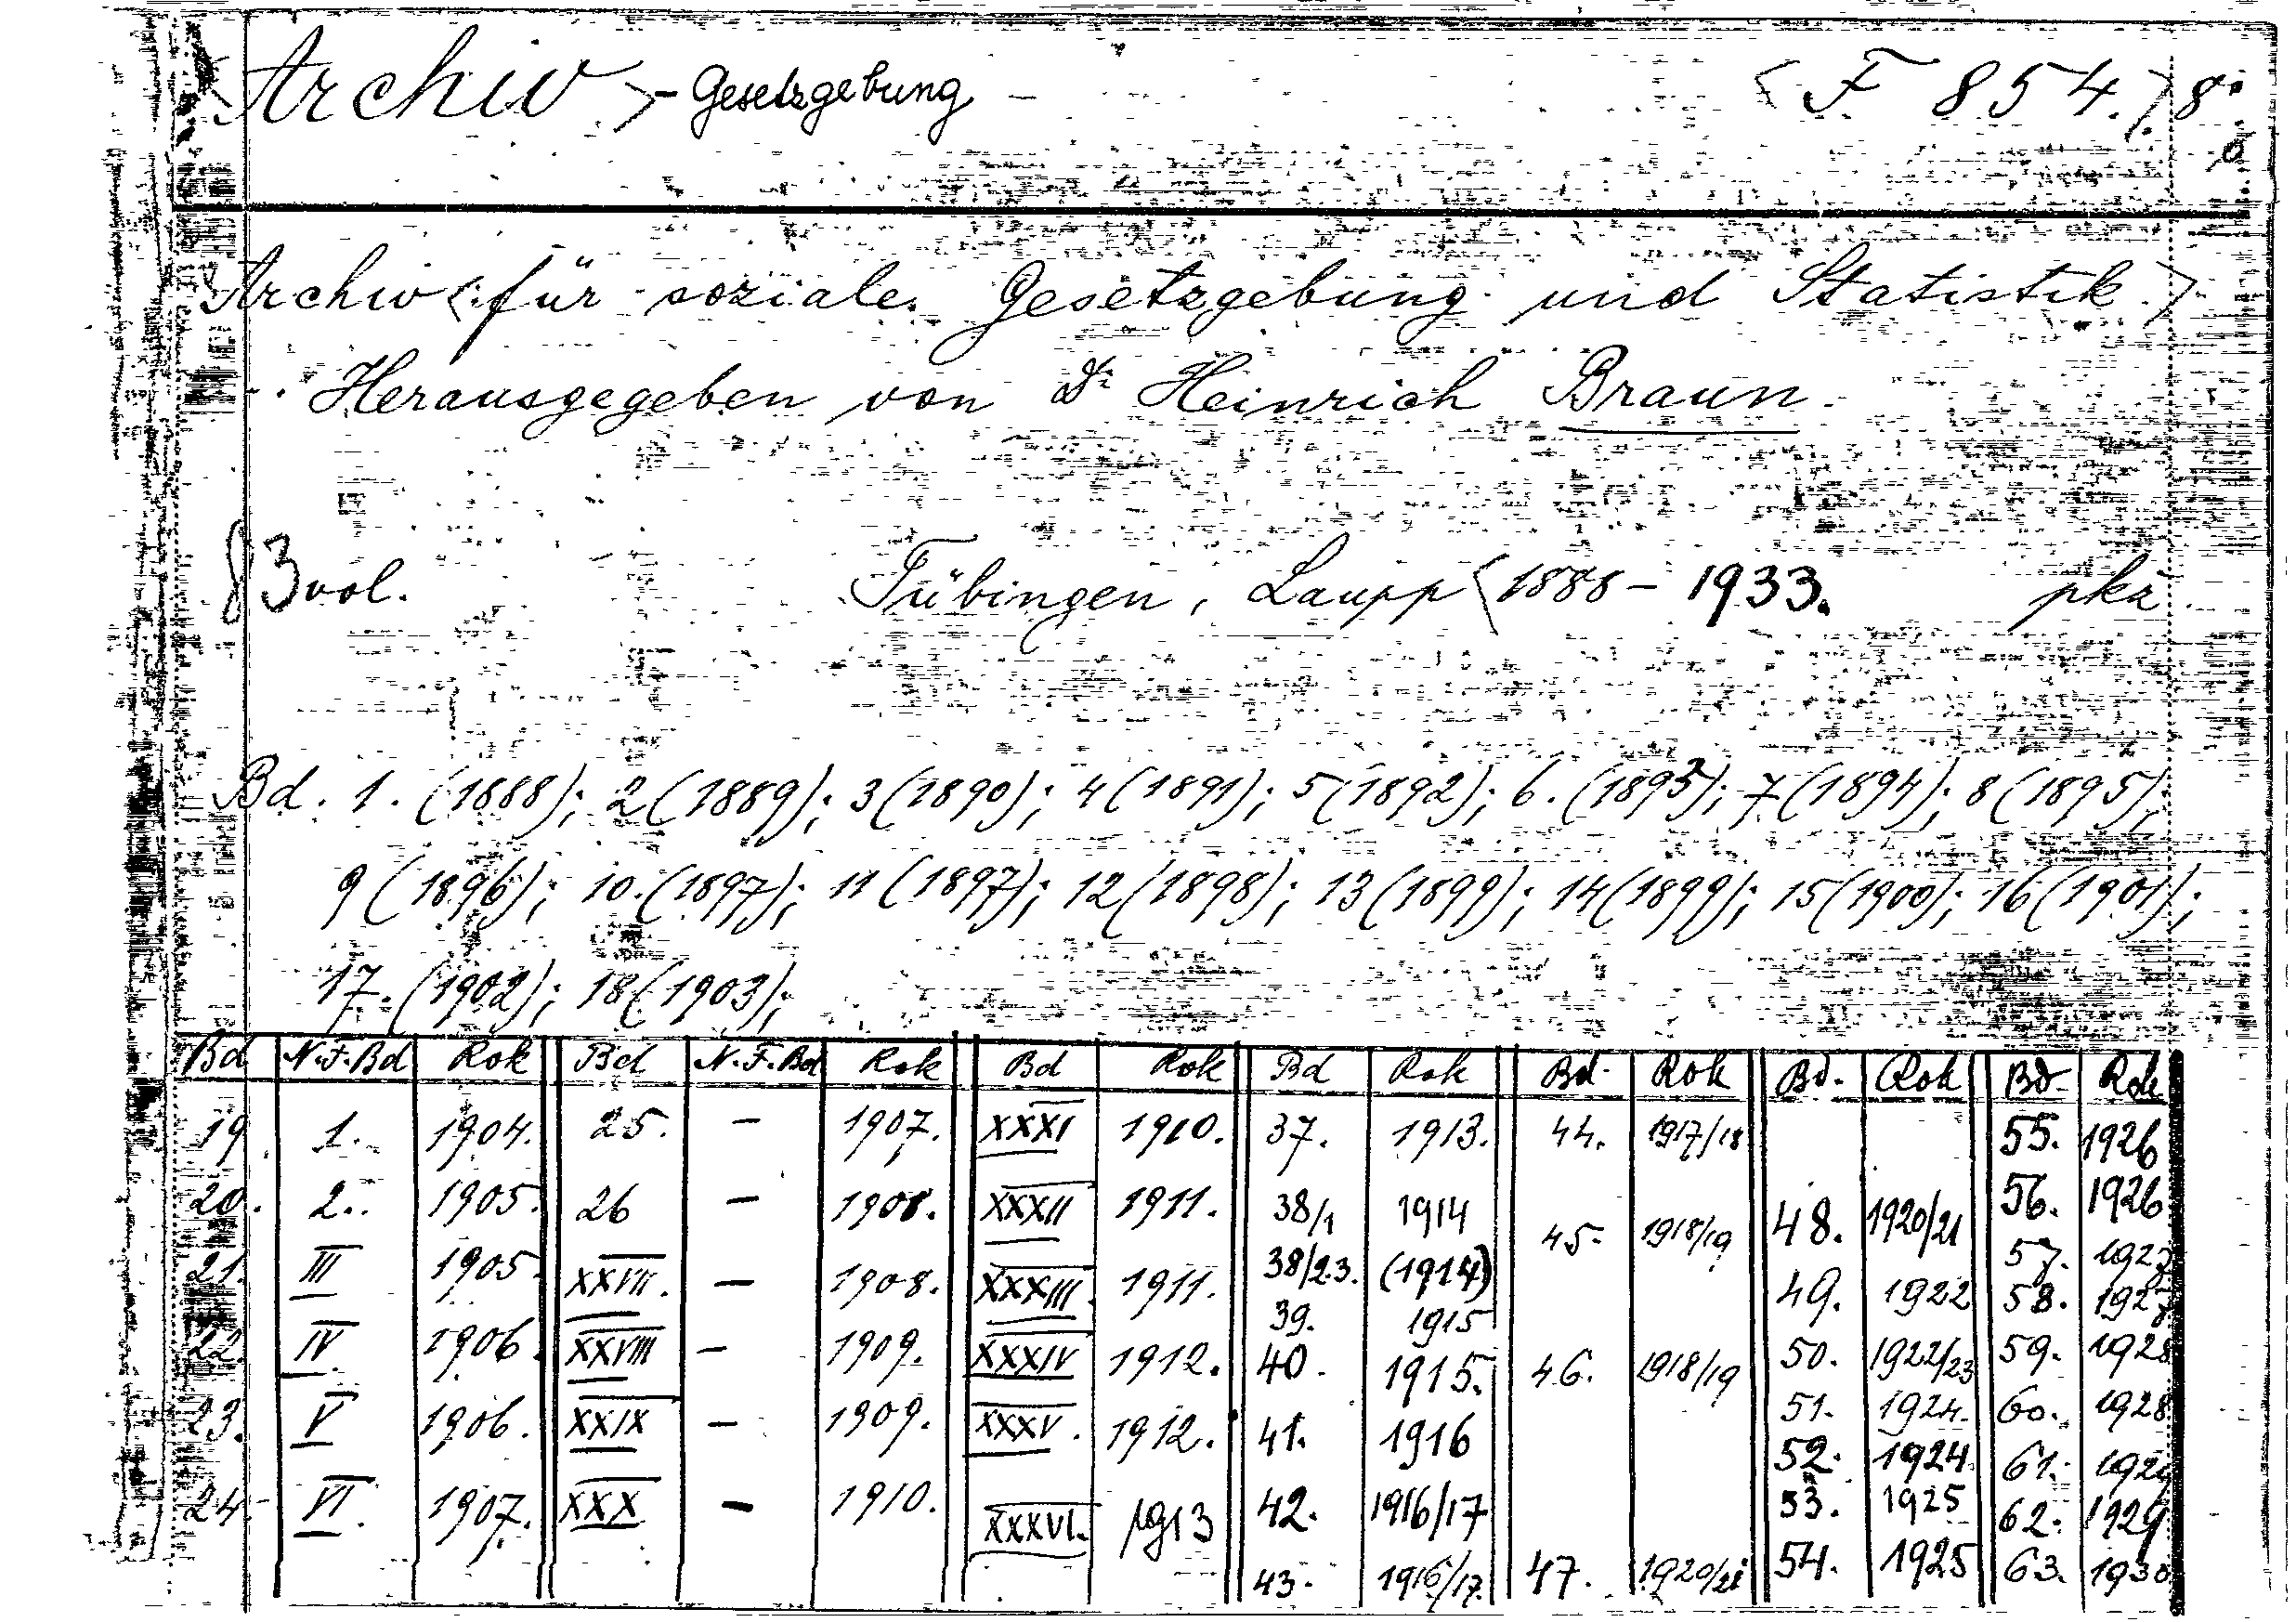 Archiv > - Gesetzgebung < F 854. > 8°
Archiv <: für soziale Gesetzgebung und Statistik >
Herausgegeben von Dr Heinrich Braun.
83 vol. Tübingen, Laupp < 1888 - 1933. pkz
Bd. 1. (1888); 2 (1889); 3 (1890); 4 (1891); 5 (1892); 6. (1893); 7 (1894); 8 (1895);
9 (1896); 10. (1897); 11 (1897); 12 (1898); 13 (1899); 14 (1899); 15 (1900); 16 (1901);
17. (1902); 18 (1903);
Bd N.F.Bd Rok Bd N.F.Bd Rok Bd Rok Bd Rok Bd. Rok Bd. Rok Bd. Rok
19. 1. 1904. 25. - 1907. XXXI 1910. 37. 1913. 44. 1917/18 55. 1926
20. 2. 1905. 26 - 1908. XXXII 1911. 38/1 1914 45. 1918/19 48. 1920/21 56. 1926
21. III 1905. XXVII. - 1908. XXXIII. 1911. 38/2.3. (1914) 57. 1927
39. 1915 49. 1922 58. 1927
22. IV. 1906. XXVIII - 1909. XXXIV 1912. 40. 1915. 46. 1918/19 50. 1922/23 59. 1928
23. V 1906. XXIX - 1909. XXXV. 1912. 41. 1916 51. 1924. 60. 1928
52. 1924. 61. 1929
24. VI. 1907. XXX - 1910. XXXVI. 1913 42. 1916/17 53. 1925 62. 1929
43. 1916/17. 47. 1920/21 54. 1925 63. 1930